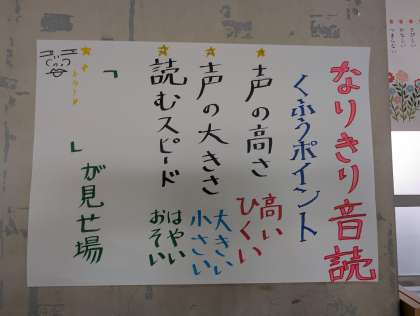 なりきり音読
くふうポイント
★声の高さ 高い ひくい
★声の大きさ 大きい 小さい
★読むスピード はやい おそい
「 」が見せ場